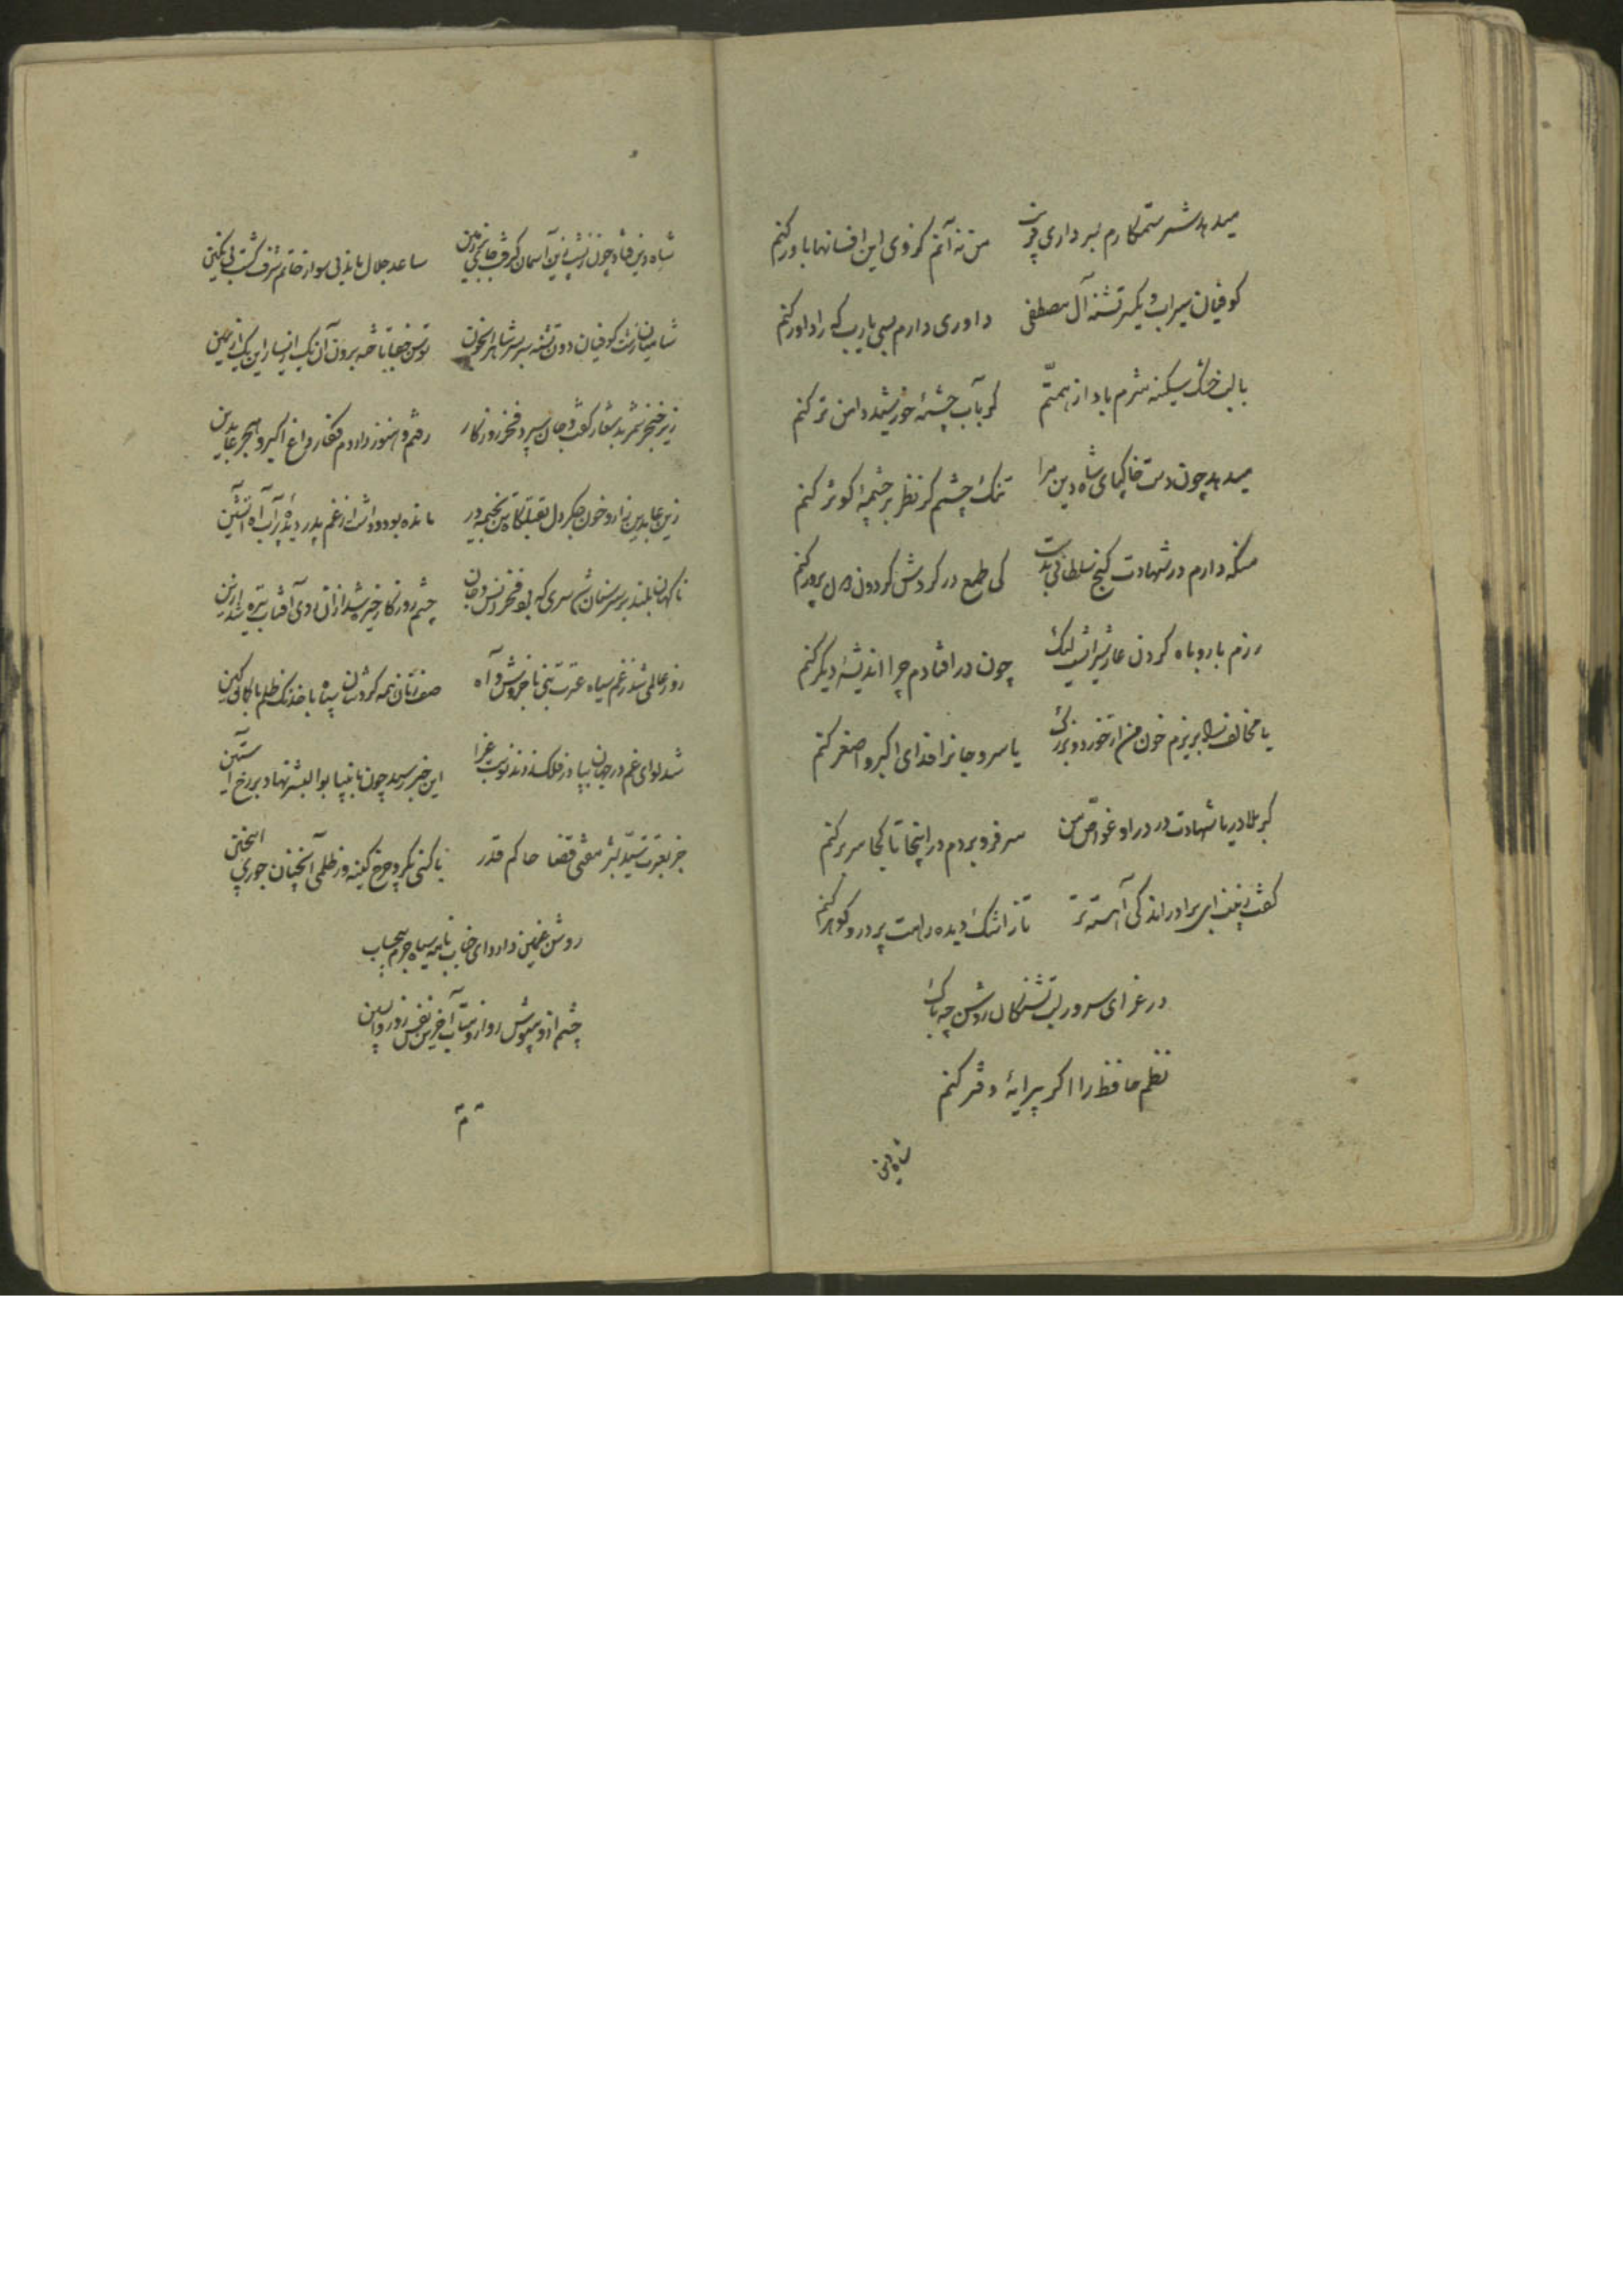 میدهد شمر ستمکارم بسرداری فریب من نه آنم کز وی این افسانها باور کنم
کوفیان سیراب و یکسر تشنه آل مصطفی داوری دارم بسی یارب که را داور کنم
با لب خشک سکینه شرم باد از همتم گر بآب چشمهٔ خورشید دامن تر کنم
میدهد چون دست خاکپای شاه دین مرا تنک چشمم گر نظر بر چشمهٔ کوثر کنم
منکه دارم در شهادت گنج سلطانی بدست کی طمع در گردش گردون دون پرور کنم
رزم با روباه کردن عار شیرانست لیک چون در افتادم چرا اندیشهٔ دیگر کنم
یا مخالف را بریزم خون من از خورد و بزرگ یا سر و جانرا فدای اکبر و اصغر کنم
کربلا دریا شهادت در در او غواص من سر فرو بردم در اینجا تا کجا سر بر کنم
گفت زینب ای برادر اندکی آهسته تر تا ز اشک دیده راهت پر در و گوهر کنم
در عزای سرور لب تشنگان روشن چه باک
نظم حافظ را اگر پیرایهٔ دفتر کنم
شاه دین
شاه دین فتاد چون ز پشت زین آسمان گرفت جای بر زمین ساعد جلال ماند بی سوار خاتم شرف گشت بی نگین
شامیان زشت کوفیان دون تشنه سر بسر شاهرا بخون توسن جفا تاخته برون آن یک از یسار این یک از یمین
زیر خنجر شمر بد شعار گفت و جان سپرد فخر روزگار رفتم و هنوز دارد دم فکار داغ اکبر و هجر عابدین
زین عابدین زار و خون جگر دل بقتلگاه تن بخیمه در مانده بود و داشت از غم پدر دیدهٔ پر آب آه آتشین
ناگهان بلند بر سر سنان شد سری که بود فخر انس و جان چشم روزگار خیره شد از آن روی آفتاب تیره شد ازین
روز عالمی شد ز غم سیاه عترت نبی با خروش و آه صف زنان همه گردشان سپاه با خدنک ظلم با کمان کین
شد لوای غم در جهان بپا در فلک زدند نوبت عزا این خبر رسید چون بانبیا بوالبشر نهاد بر رخ آستین
جز بعترت سید بشر مفتی قضا حاکم قدر با کسی نکرد چرخ کینه ور ظلمی آنچنان جوری اینچنین
روشن غمین دارد ای جناب نامه سیاه جرم بیحساب
چشم ازو مپوش رو ازو متاب آخرین نفس روز واپسین
تم